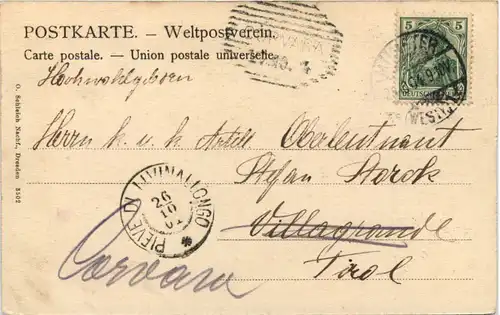 POSTKARTE. — Weltpostverein.
Carte postale. — Union postale universelle.
5 5
DEUTSCHES
(WESTF.)
Hochwohlgeboren
Herrn k. u. k. Artill Oberleutnant
Stefan Storck
Villagrande
Tirol
Corvara
PIEVE DI LIVINALLONGO
26
10
O. Schleich Nachf., Dresden 3502